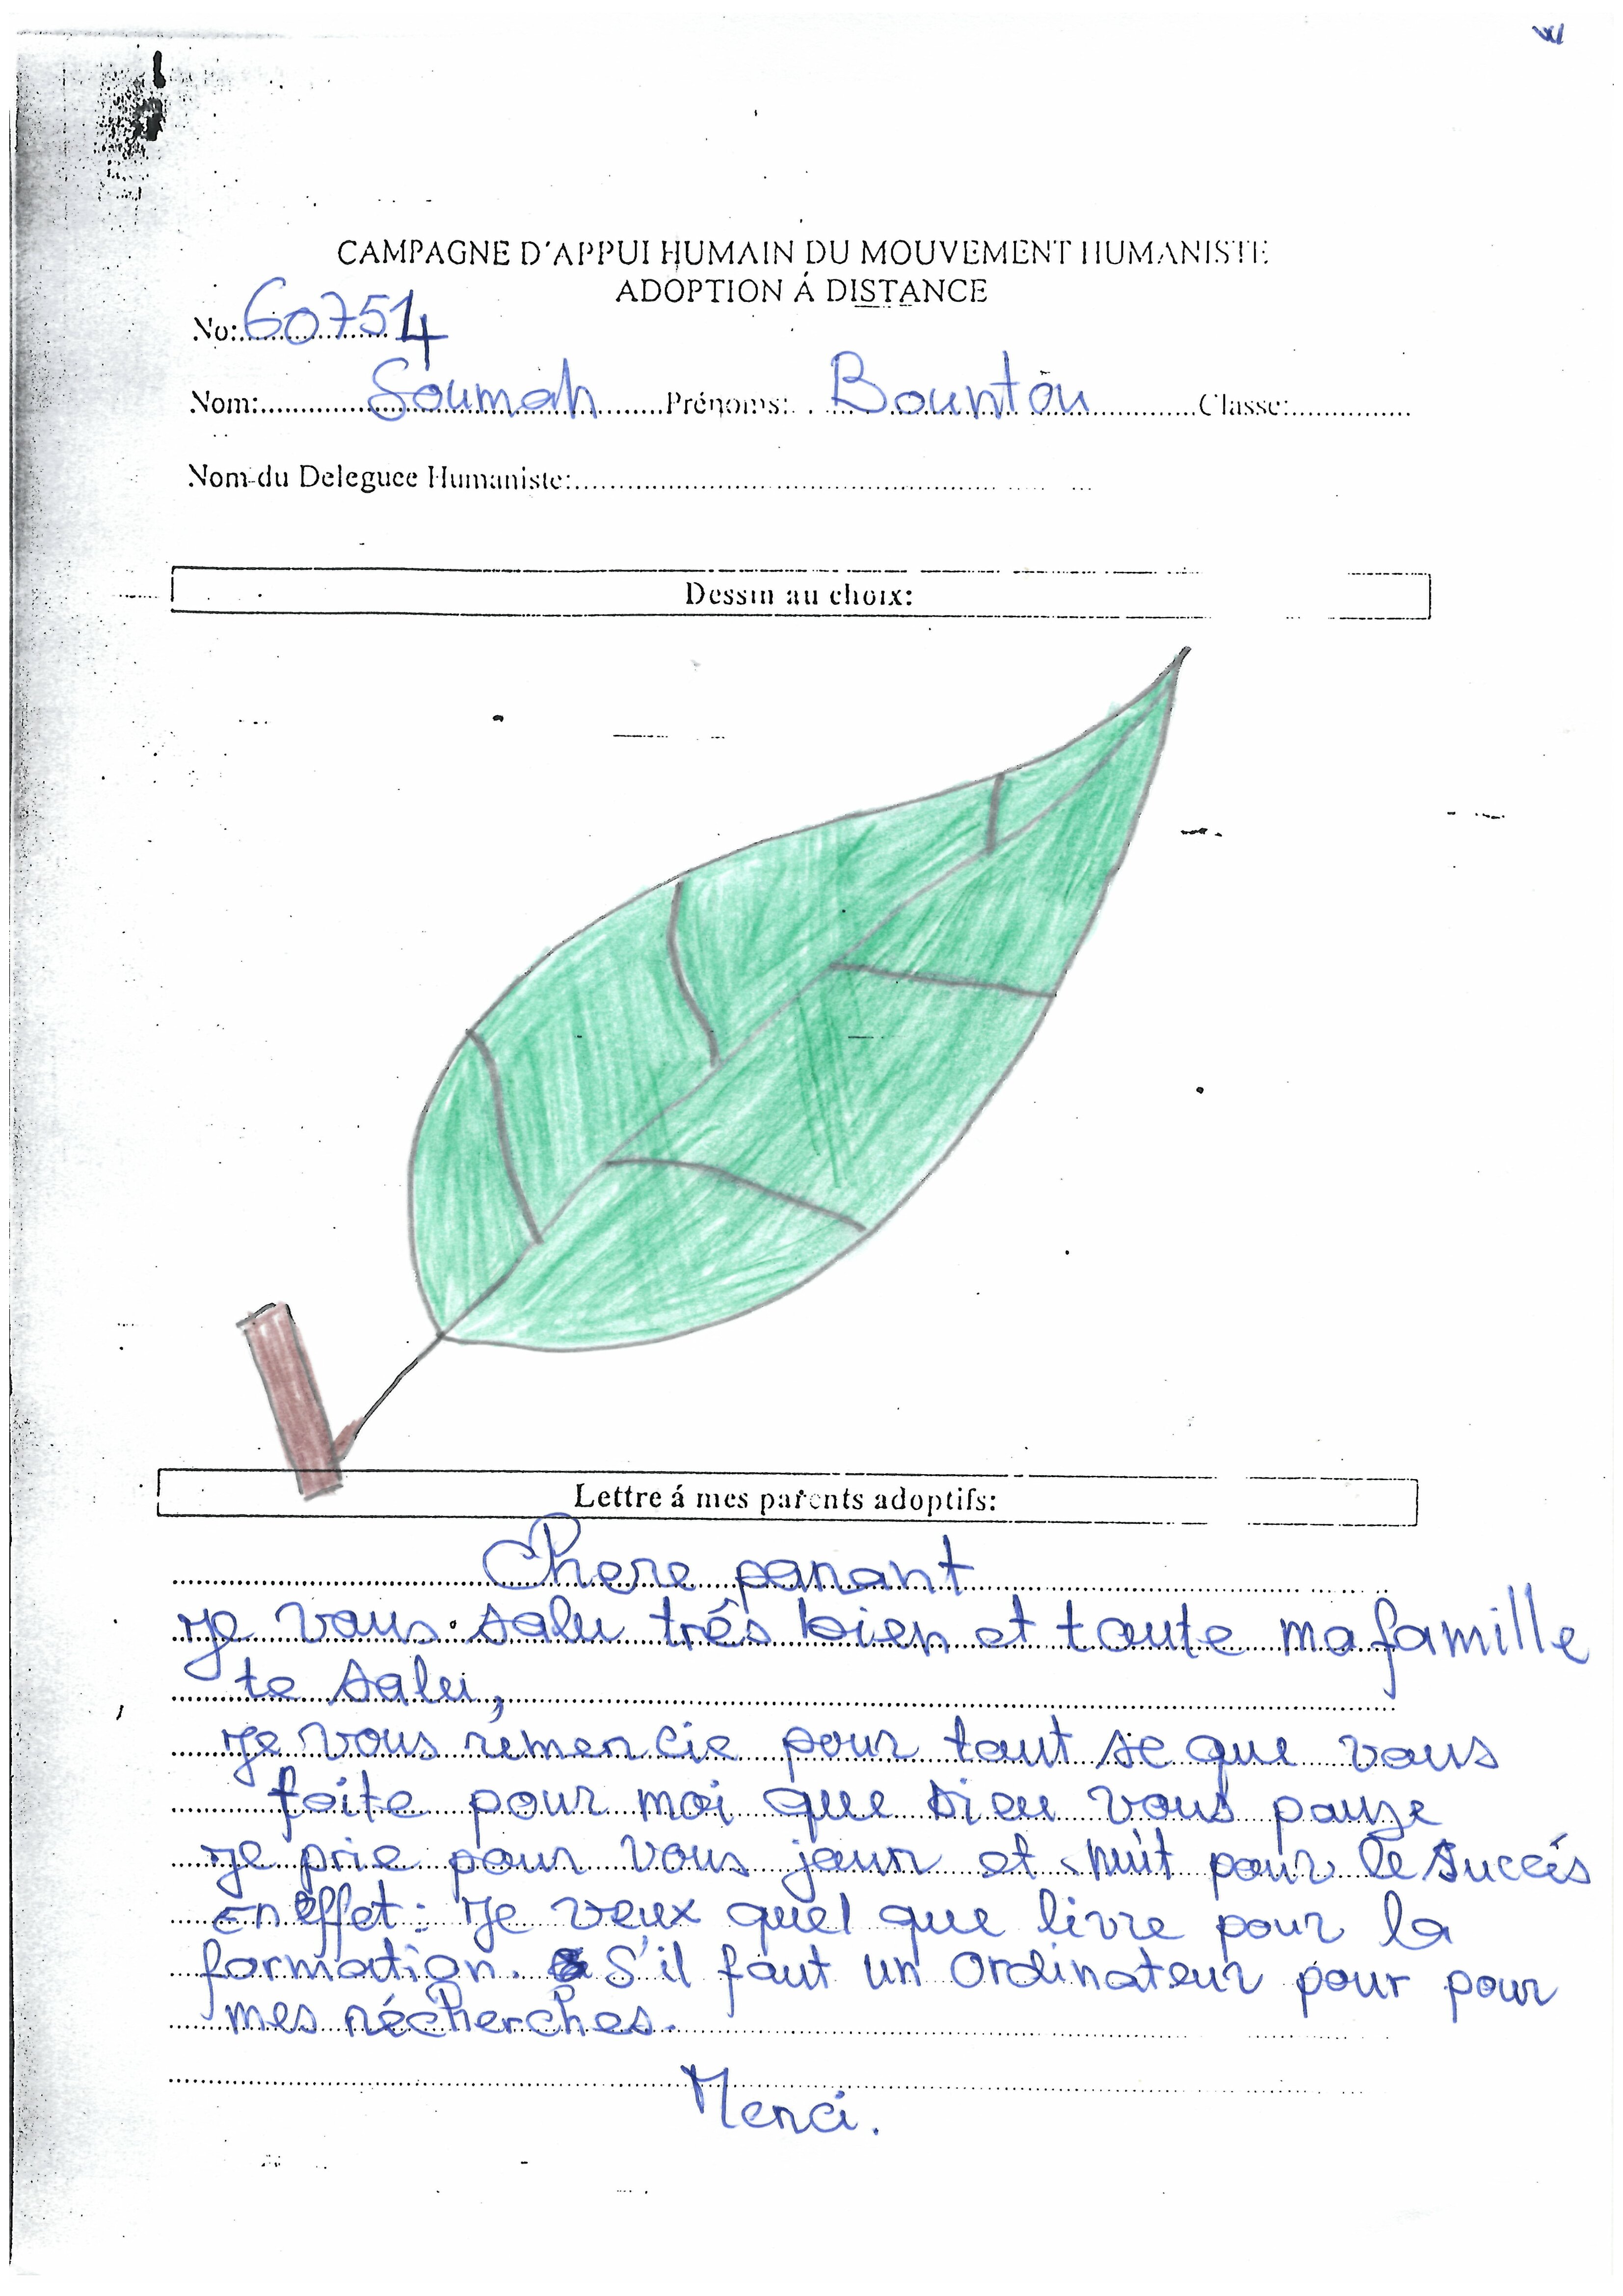 CAMPAGNE D'APPUI HUMAIN DU MOUVEMENT HUMANISTE
ADOPTION Á DISTANCE
No: 607514
Nom: Soumah Prénoms: Bountou Classe:
Nom du Deleguee Humaniste:
Dessin au choix:
Lettre á mes parents adoptifs:
Chere parant
Je vous salu trés bien et toute ma famille
te salu,
Je vous rémercie pour tout se que vous
faite pour moi que dieu vous pauze
Je prie pour vous jour et nuit pour le succés
En effet: Je veux quel que livre pour la
formation. S'il faut un Ordinateur pour pour
mes récherches.
Merci.